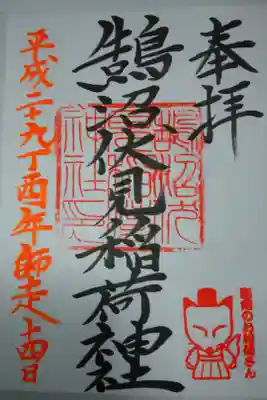 奉拝
鵠沼伏見稲荷神社
平成二十九丁酉年師走十四日